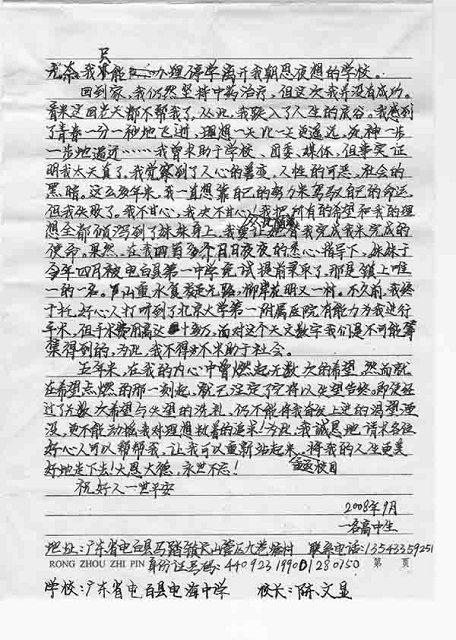 无奈,我只能办理停学离开我朝思夜想的学校。
回到家,我仍然坚持中药治疗,但这次我并没有成功。
看来这回老天都不帮我了,从此,我跌入了人生的底谷。我感到
了青春一分一秒地飞逝,理想一天比一天更遥远,死神一步
一步地逼近……我曾求助于学校、团委、媒体,但事实证
明我太天真了,我觉察到了人心的善变,人性的可恶,社会的
黑暗。这么多年来,我一直想靠自己的努力来驾驭自己的命运,
但我失败了。我不甘心,我决不甘心!我把所有的希望和我的理
想全都倾泻到了妹妹身上,我要让她替我完成我未完成的
使命。果然,在我两百多个日日夜夜的悉心指导下,妹妹于
今年四月被电白县第一中学免试提前录取了,那是镇上唯
一的一名。山重水复疑无路,柳岸花明又一村。不久前,我终
于托好心人打听到了北京大学第一附属医院有能力为我进行
手术,但手术费用高达十多万,面对这个天文数字我们是不可能筹
集得到的,为此,我不得不求助于社会。
五年来,在我的内心中曾燃起无数次的希望,然而就
在希望点燃的那一刻起,就已注定了它将以失望告终。即使经
过了无数次希望与失望的洗礼,仍不能将我奋发上进的渴望淹
没,更不能动摇我对理想执着的追求!为此,我诚恳地请求各位
好心人可以帮帮我,让我可以重新站起来,将我的人生更美
好地走下去!大恩大德,永世不忘!
祝好人一世平安
2008年9月
一名高中生
地址:广东省电白县马踏镇 联系电话:13543359251
RONG ZHOU ZHI PIN 身份证号码:440923199001280150 第 页
学校:广东省电白县电海中学 校长:陈文显